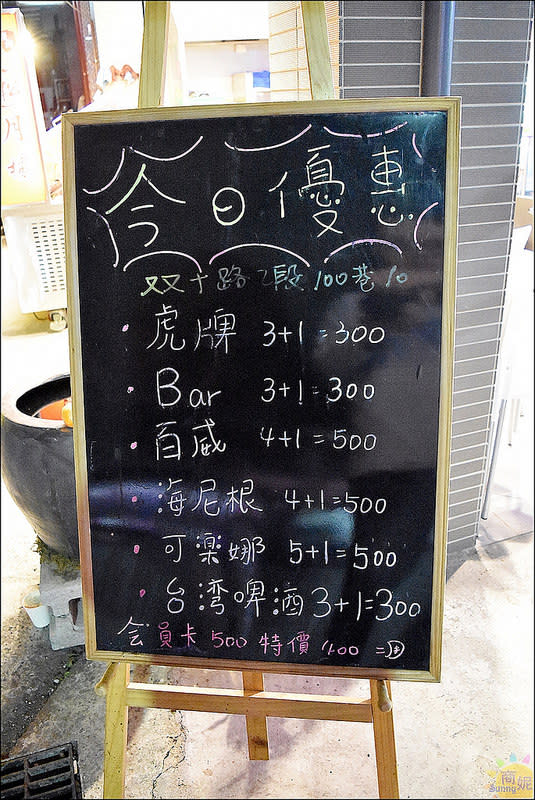 今日優惠
双十路2段100巷10
虎牌 3+1=300
Bar 3+1=300
百威 4+1=500
海尼根 4+1=500
可楽娜 5+1=500
台湾啤酒 3+1=300
会員卡 500 特價 400
Sunny 商妮